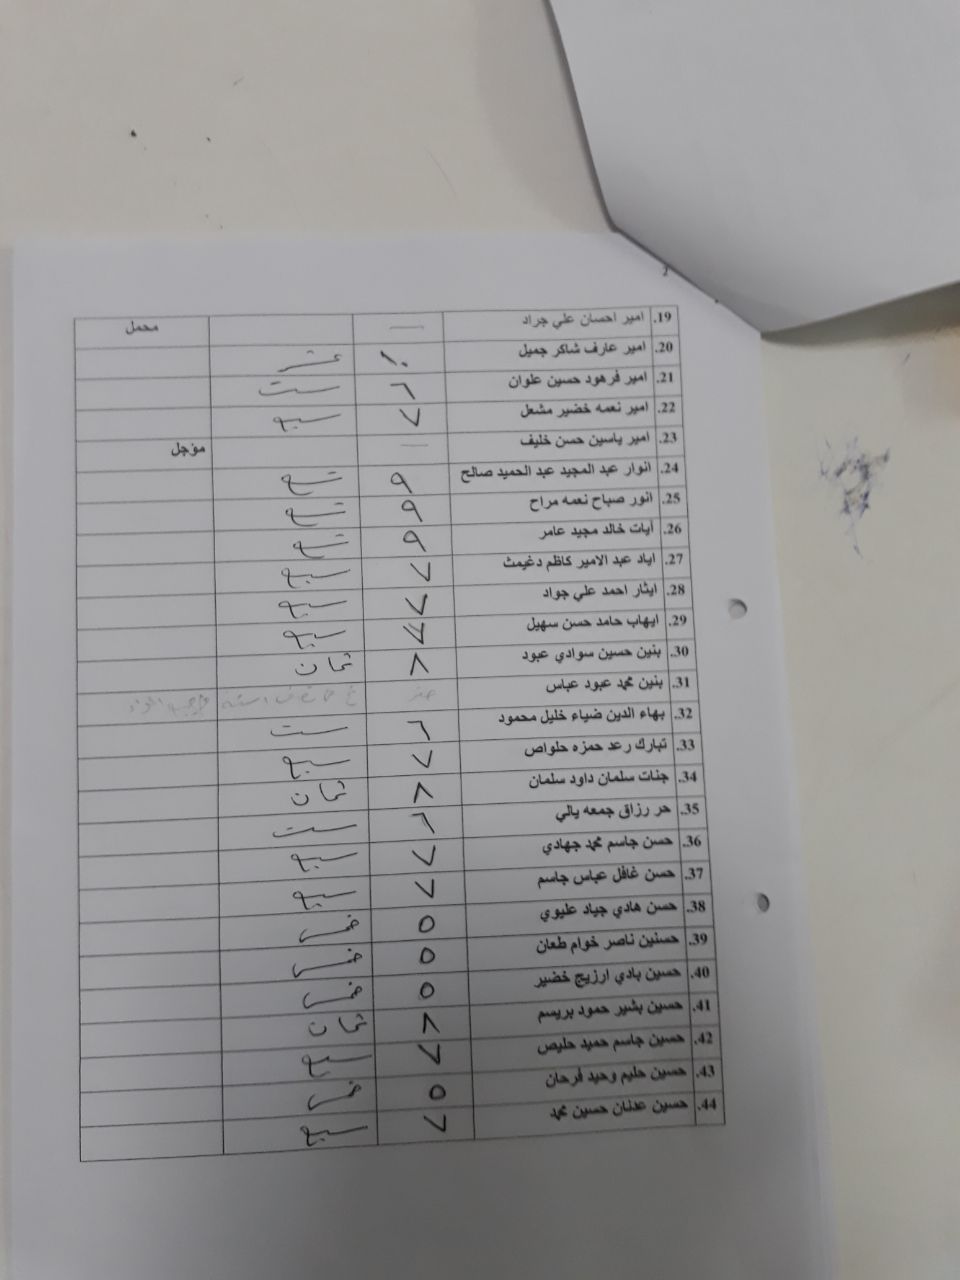 2
19. امير احسان علي جراد — محمل
20. امير عارف شاكر جميل ١٠ عشر
21. امير فرهود حسين علوان ٦ ست
22. امير نعمه خضير مشعل ٧ سبع
23. امير ياسين حسن خليف — مؤجل
24. انوار عبد المجيد عبد الحميد صالح ٩ تسع
25. انور صباح نعمه مراح ٩ تسع
26. آيات خالد مجيد عامر ٩ تسع
27. اياد عبد الامير كاظم دغيمث ٧ سبع
28. ايثار احمد علي جواد ٧ سبع
29. ايهاب حامد حسن سهيل ٧ سبع
30. بنين حسين سوادي عبود ٨ ثمان
31. بنين محمد عبود عباس صفر
32. بهاء الدين ضياء خليل محمود ٦ ست
33. تبارك رعد حمزه حلواص ٧ سبع
34. جنات سلمان داود سلمان ٨ ثمان
35. حر رزاق جمعه يالي ٦ ست
36. حسن جاسم محمد جهادي ٧ سبع
37. حسن غافل عباس جاسم ٧ سبع
38. حسن هادي جياد عليوي ٥ خمس
39. حسنين ناصر خوام طعان ٥ خمس
40. حسين بادي ارزيج خضير ٥ خمس
41. حسين بشير حمود بريسم ٨ ثمان
42. حسين جاسم حميد حليص ٧ سبع
43. حسين حليم وحيد فرحان ٥ خمس
44. حسين عدنان حسين محمد ٧ سبع